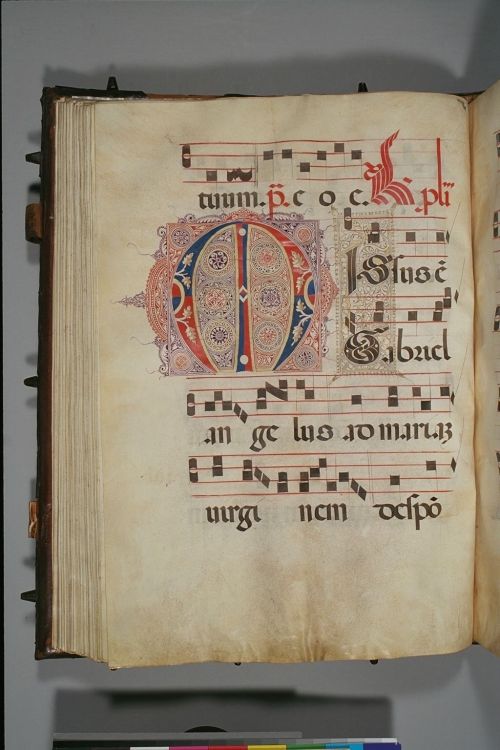 tuum. p̄. c o c. .pli
MIssus ē
Gabriel
an ge lus ad mariaz
uirgi nem despō